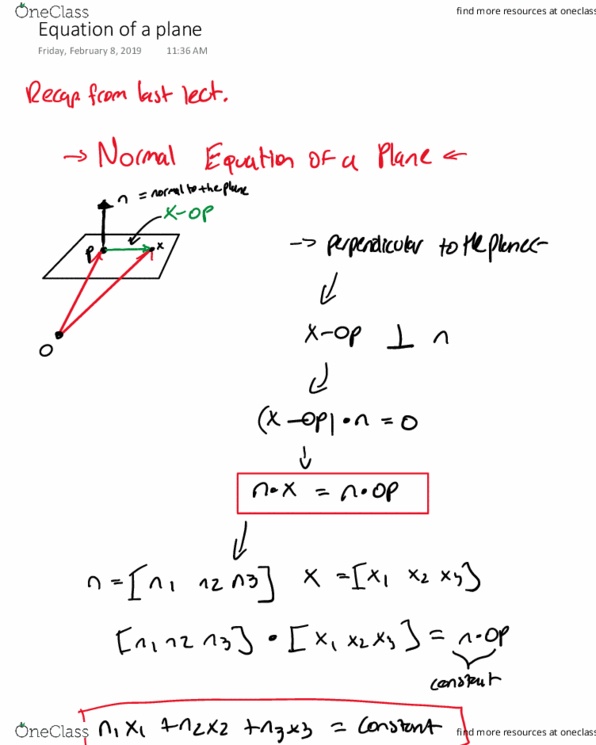 OneClass
find more resources at oneclass
Equation of a plane
Friday, February 8, 2019 11:36 AM
Recap from last lect.
→ Normal Equation of a Plane ←
n = normal to the plane
x-op
P
x
O
-> perpendicular to the plane<-
x-op ⊥ n
(x-op)•n = 0
n•x = n•op
n = [n1 n2 n3] x = [x1 x2 x3]
[n1 n2 n3] • [x1 x2 x3] = n•op
constant
n1x1 + n2x2 + n3x3 = constant
OneClass
find more resources at oneclass